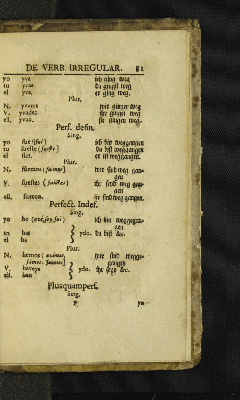 DE VERB. IRREGULAR. 81
yo yva ich ging weg
tu yvas du gingst weg
el yva, er ging weg.
Plur.
N. yvamos wir gingen weg
V. yvades ihr ginget weg
ell. yvan. sie gingen weg.
Perf. defin.
Sing.
yo fue (fui) ich bin weggangen
tu fueste du bist weggangen
el fue. er ist weggangen.
Plur.
N. fuemos wir sind weg gan-
gen
V. fuestes ihr seyd weg gan-
gen
ell. fueron. sie sind weg gangen.
Perfect. Indef.
Sing.
yo he ich bin weggegan-
gen
tu has ydo. du bist &c.
el ha
Plur.
N. hemos wir sind wegge-
gangen
V. haveys ydo. ihr seyd &c.
ell. han
Plusquamperf.
Sing.
F yo